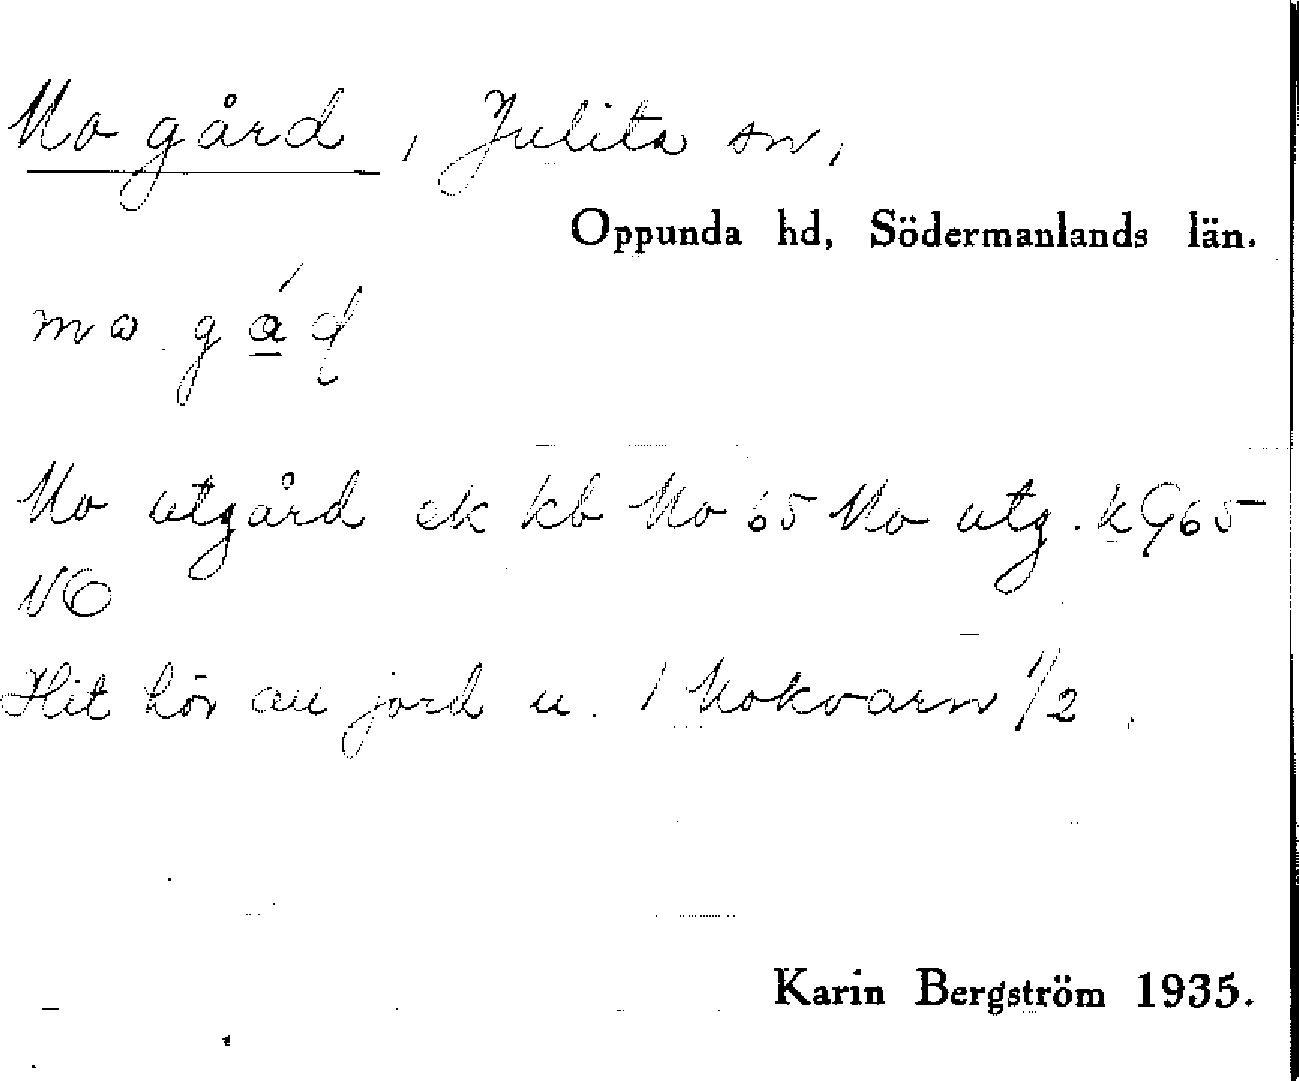 Mo gård, Julita sn,
Oppunda hd, Södermanlands län.
mo gá̱d
Mo utgård ek kb Mo 65 Mo utg. k G65
NO
Hit hör au jord u. 1 Mokvarn 1/2.
Karin Bergström 1935.